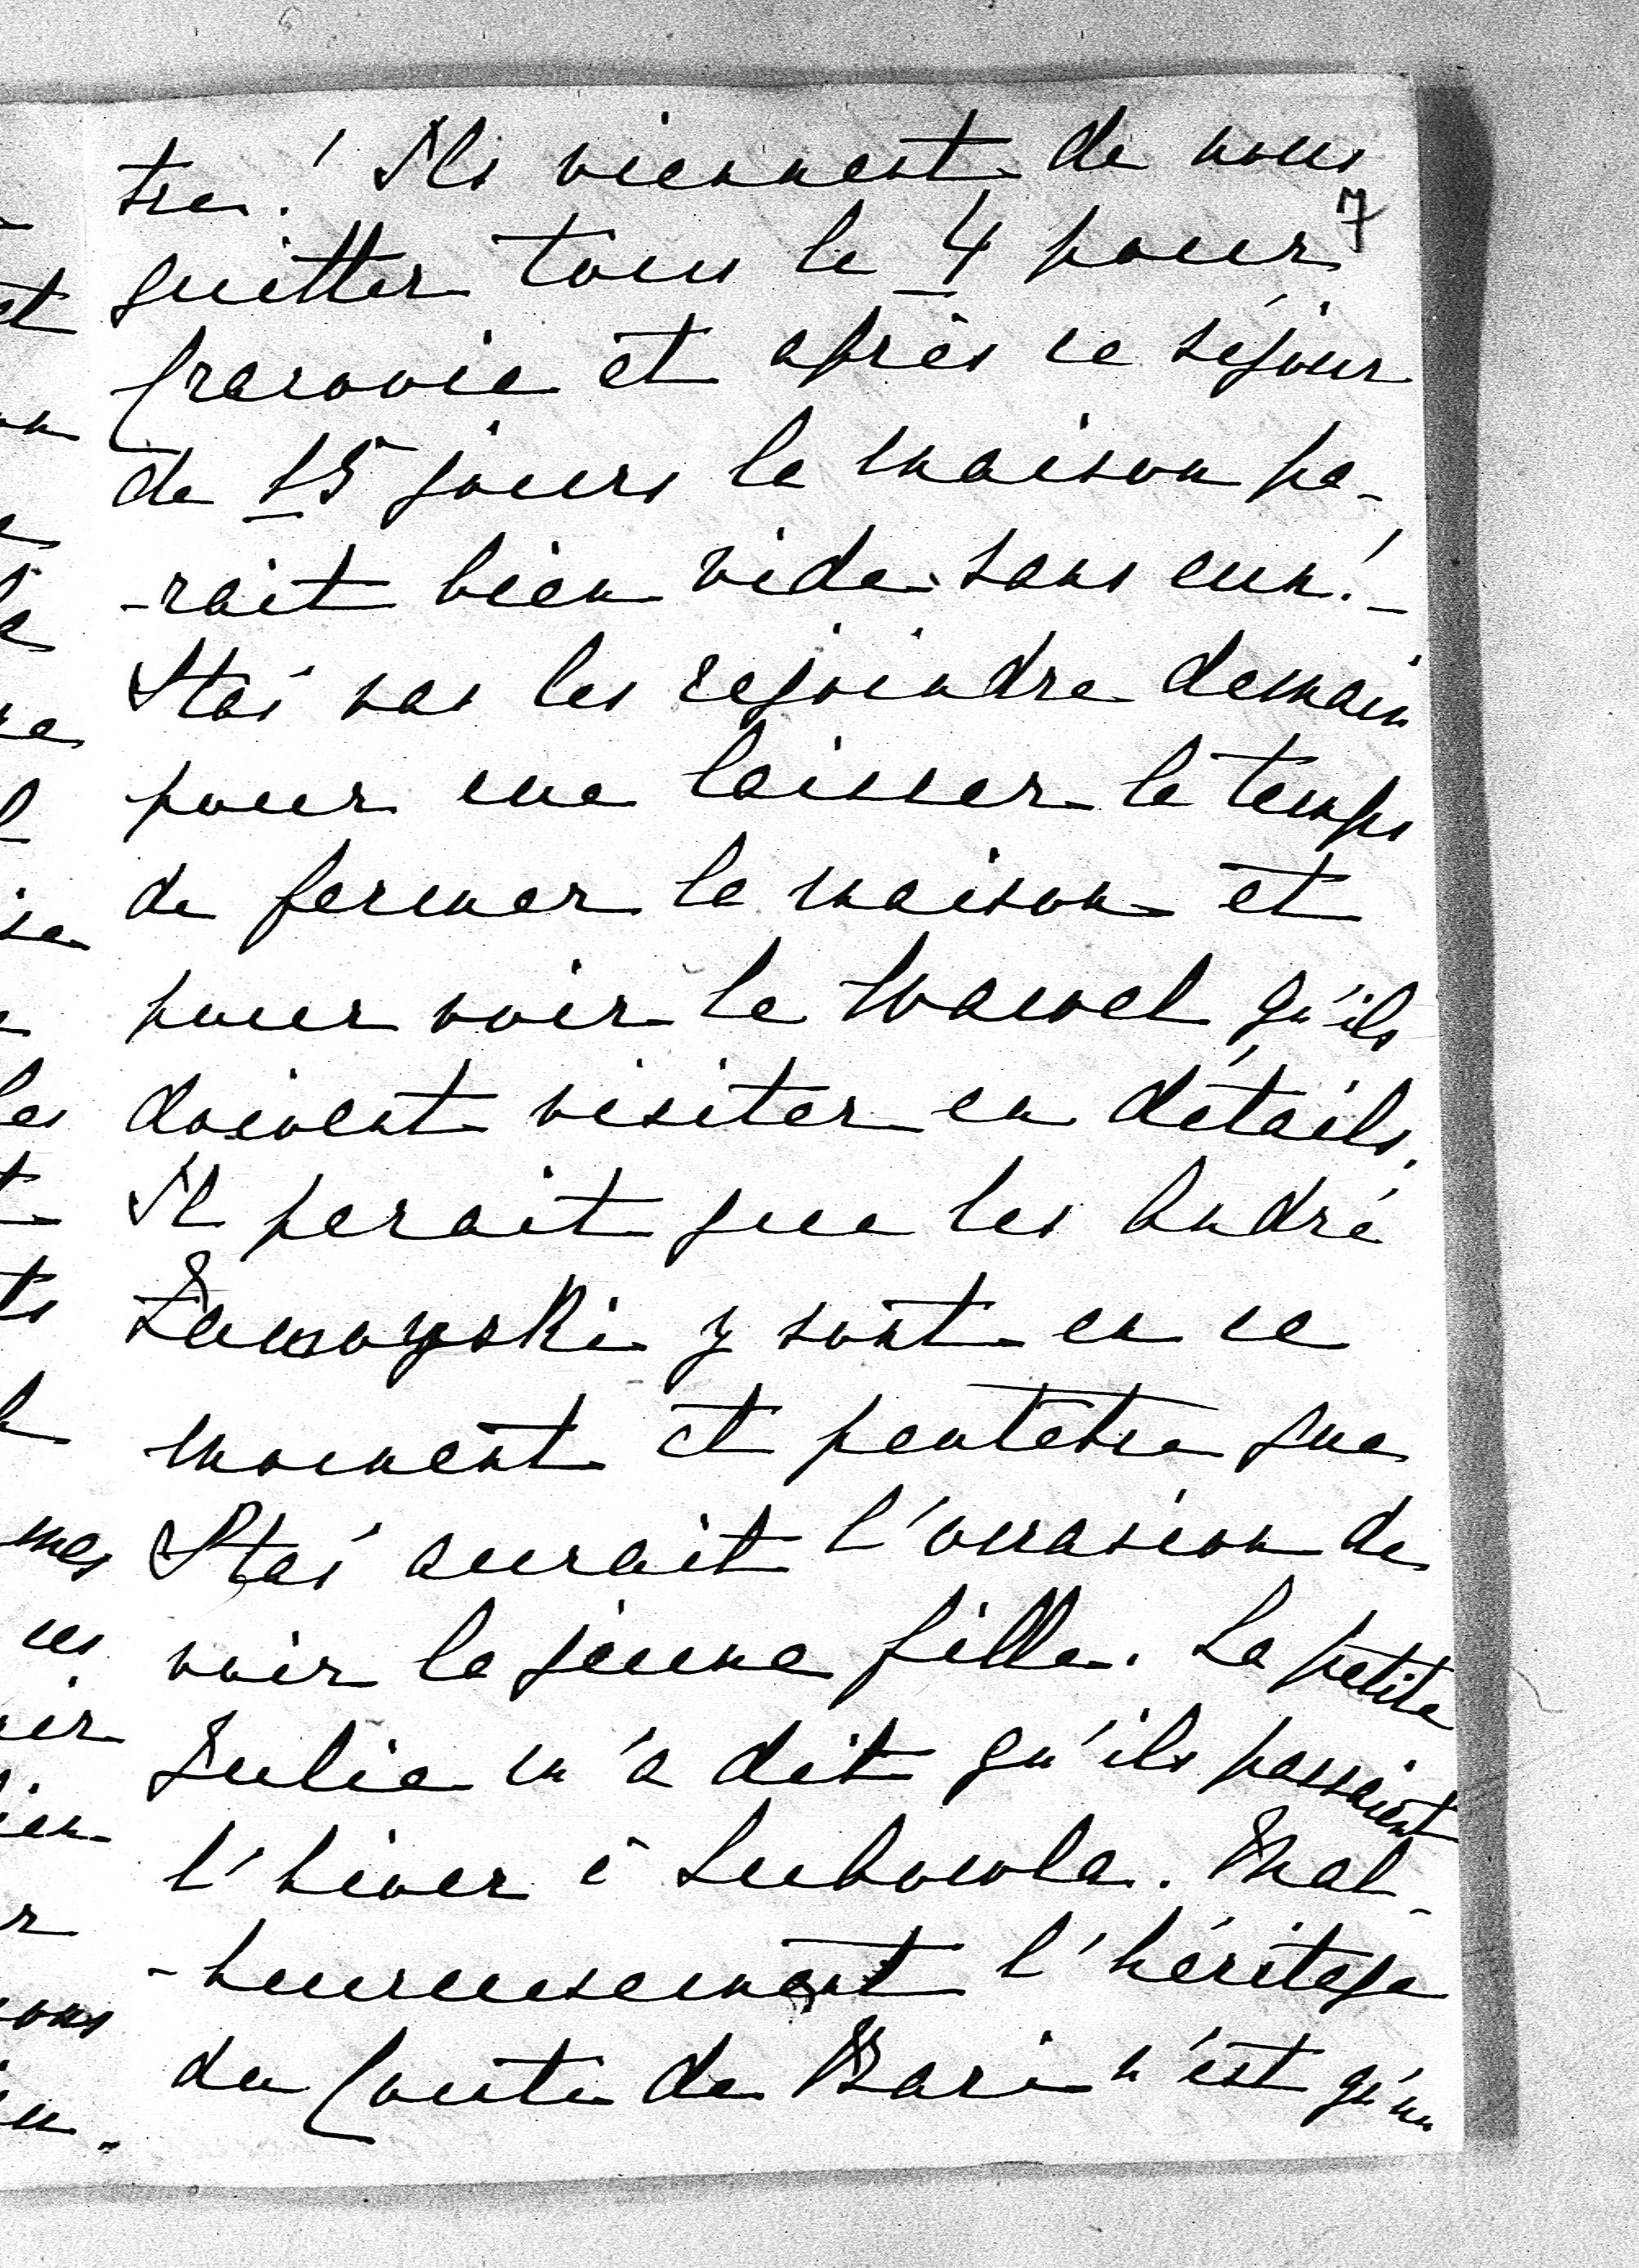 tre! Ils viennent de nous
7
quitter tous le 4 pour
Cracovie et après ce séjour
de 15 jours la maison pa-
-rait bien vide sans eux!-
Staś vas les rejoindre demain
pour me laisser le temps
de fermer la maison et
pour voir le Wawel qu'ils
doivent visiter en détails.
Il parait que les André
Zamoyski y sont en ce
moment et peutetre que
Staś aurait l'occasion de
voir la jeune fille. La petite
Julie m'a dit qu'ils passaient
l'hiver à Lubowla. Mal-
-heureusement l'héritage
du Comte de Bari n'est qu'un